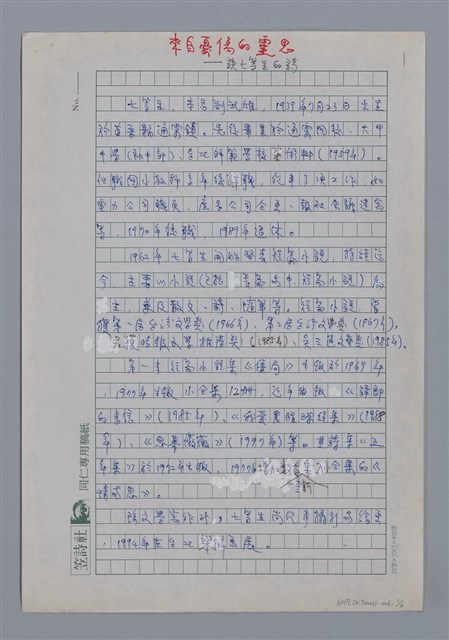 來自憂傷的靈思
——談七等生的詩
No.
七等生,本名劉武雄,1939年7月23日出生
於苗栗縣通霄鎮。先後畢業於通霄國校、大甲
中學(初中部)、台北師範學校藝術科(1959年)。
任職國小教師
電力公司職員
等,1970年復職,1989年退休。
1962年七等生開始發表短篇小說,持續迄
今,主要以小說
主,兼及散文、詩、隨筆等。短篇小說,曾
獲第一屆台灣文學獎(1966年)、第二屆台灣文學獎(1967年),
時報文學推薦獎(1985年)、吳三連文藝獎(1985年)。
第一本短篇小說集《僵局》出版於1969年
,1977年出版小全集12冊,近年出版《譚郎
的書信》(1985年)、《我愛黑眼珠續集》(1988
年)、《思慕微微》(1997年)等。其詩集《五
年集》於1972年出版,1977年
情與思》。
除文學寫作外,七等生尚從事攝影與繪畫
,1994年在台北舉辦畫展。
同仁專用稿紙
笠詩社